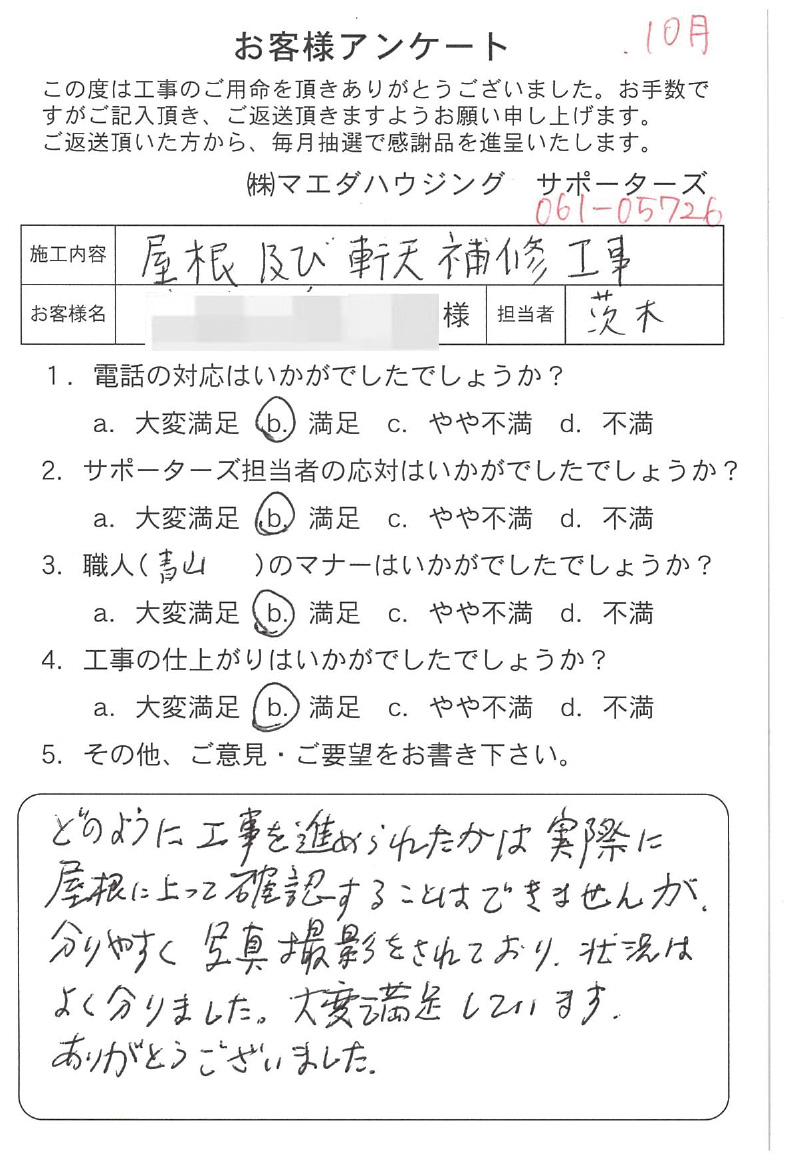 お客様アンケート
10月
この度は工事のご用命を頂きありがとうございました。お手数で
すがご記入頂き、ご返送頂きますようお願い申し上げます。
ご返送頂いた方から、毎月抽選で感謝品を進呈いたします。
㈱マエダハウジング サポーターズ
061-05726
施工内容 屋根及び軒天補修工事
お客様名 様 担当者 茨木
1. 電話の対応はいかがでしたでしょうか？
a. 大変満足 b. 満足 c. やや不満 d. 不満
2. サポーターズ担当者の応対はいかがでしたでしょうか？
a. 大変満足 b. 満足 c. やや不満 d. 不満
3. 職人(青山 )のマナーはいかがでしたでしょうか？
a. 大変満足 b. 満足 c. やや不満 d. 不満
4. 工事の仕上がりはいかがでしたでしょうか？
a. 大変満足 b. 満足 c. やや不満 d. 不満
5. その他、ご意見・ご要望をお書き下さい。
どのように工事を進められたかは実際に
屋根に上って確認することはできませんが、
分りやすく写真撮影をされており、状況は
よく分りました。大変満足しています。
ありがとうございました。